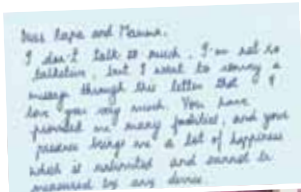 Dear Papa and Mamma,
I don't talk so much. I'm not so
talkative, but I want to convey a
message through this letter that I
love you very much. You have
provided me many facilities, and your
presence brings me a lot of happiness
which is unlimited and cannot be
measured by any device.